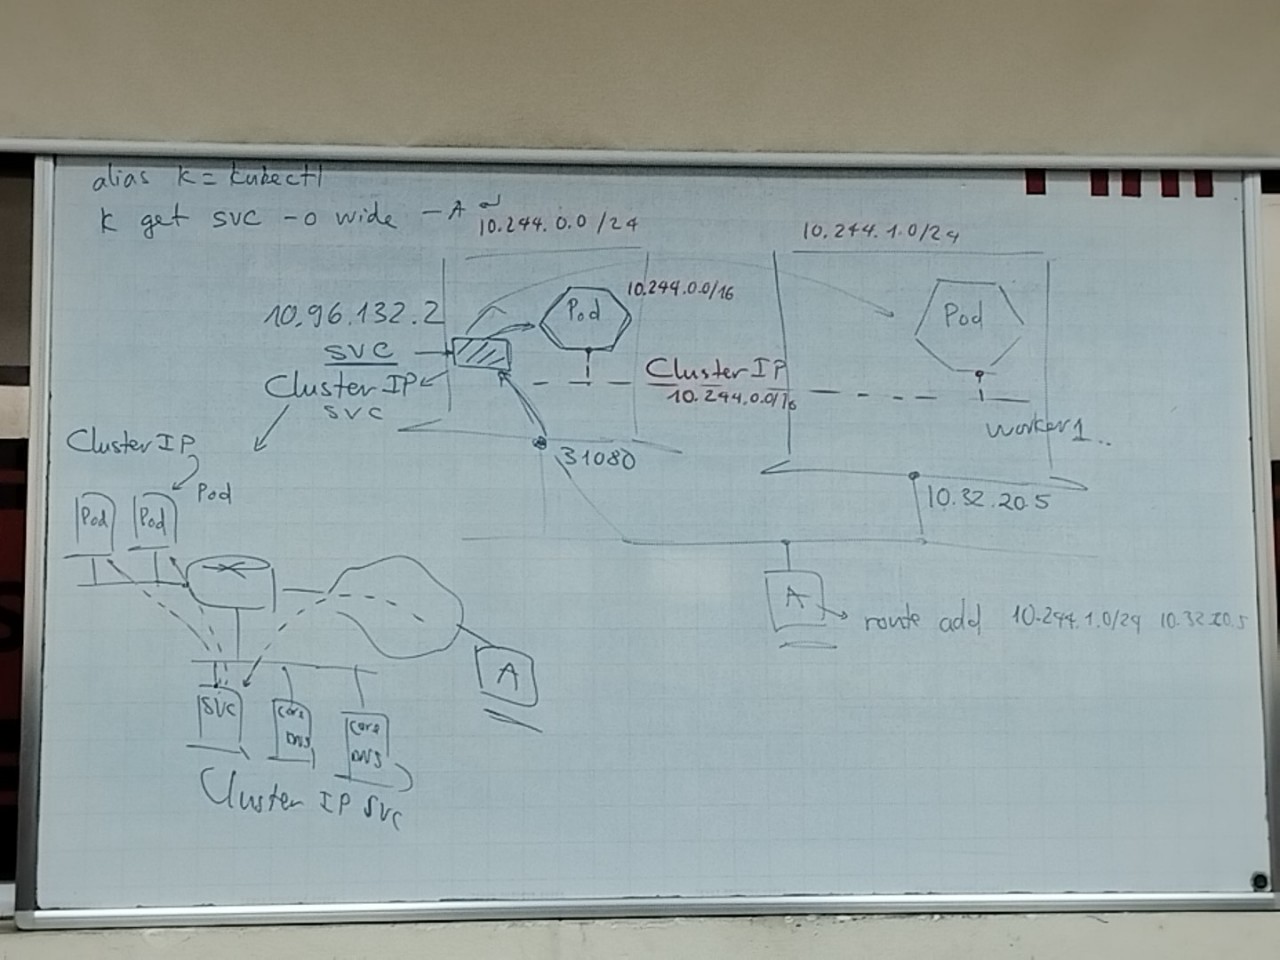 alias k = kubectl
k get svc -o wide -A
10.244.0.0/24
10.244.1.0/24
10.244.0.0/16
Pod
Pod
10.96.132.2
SVC
Cluster IP
SVC
Cluster IP
10.244.0.0/16
worker1..
31080
10.32.20.5
Cluster IP
Pod
Pod
Pod
A
route add 10.244.1.0/24 10.32.20.5
A
SVC
Core
DNS
Core
DNS
Cluster IP SVC